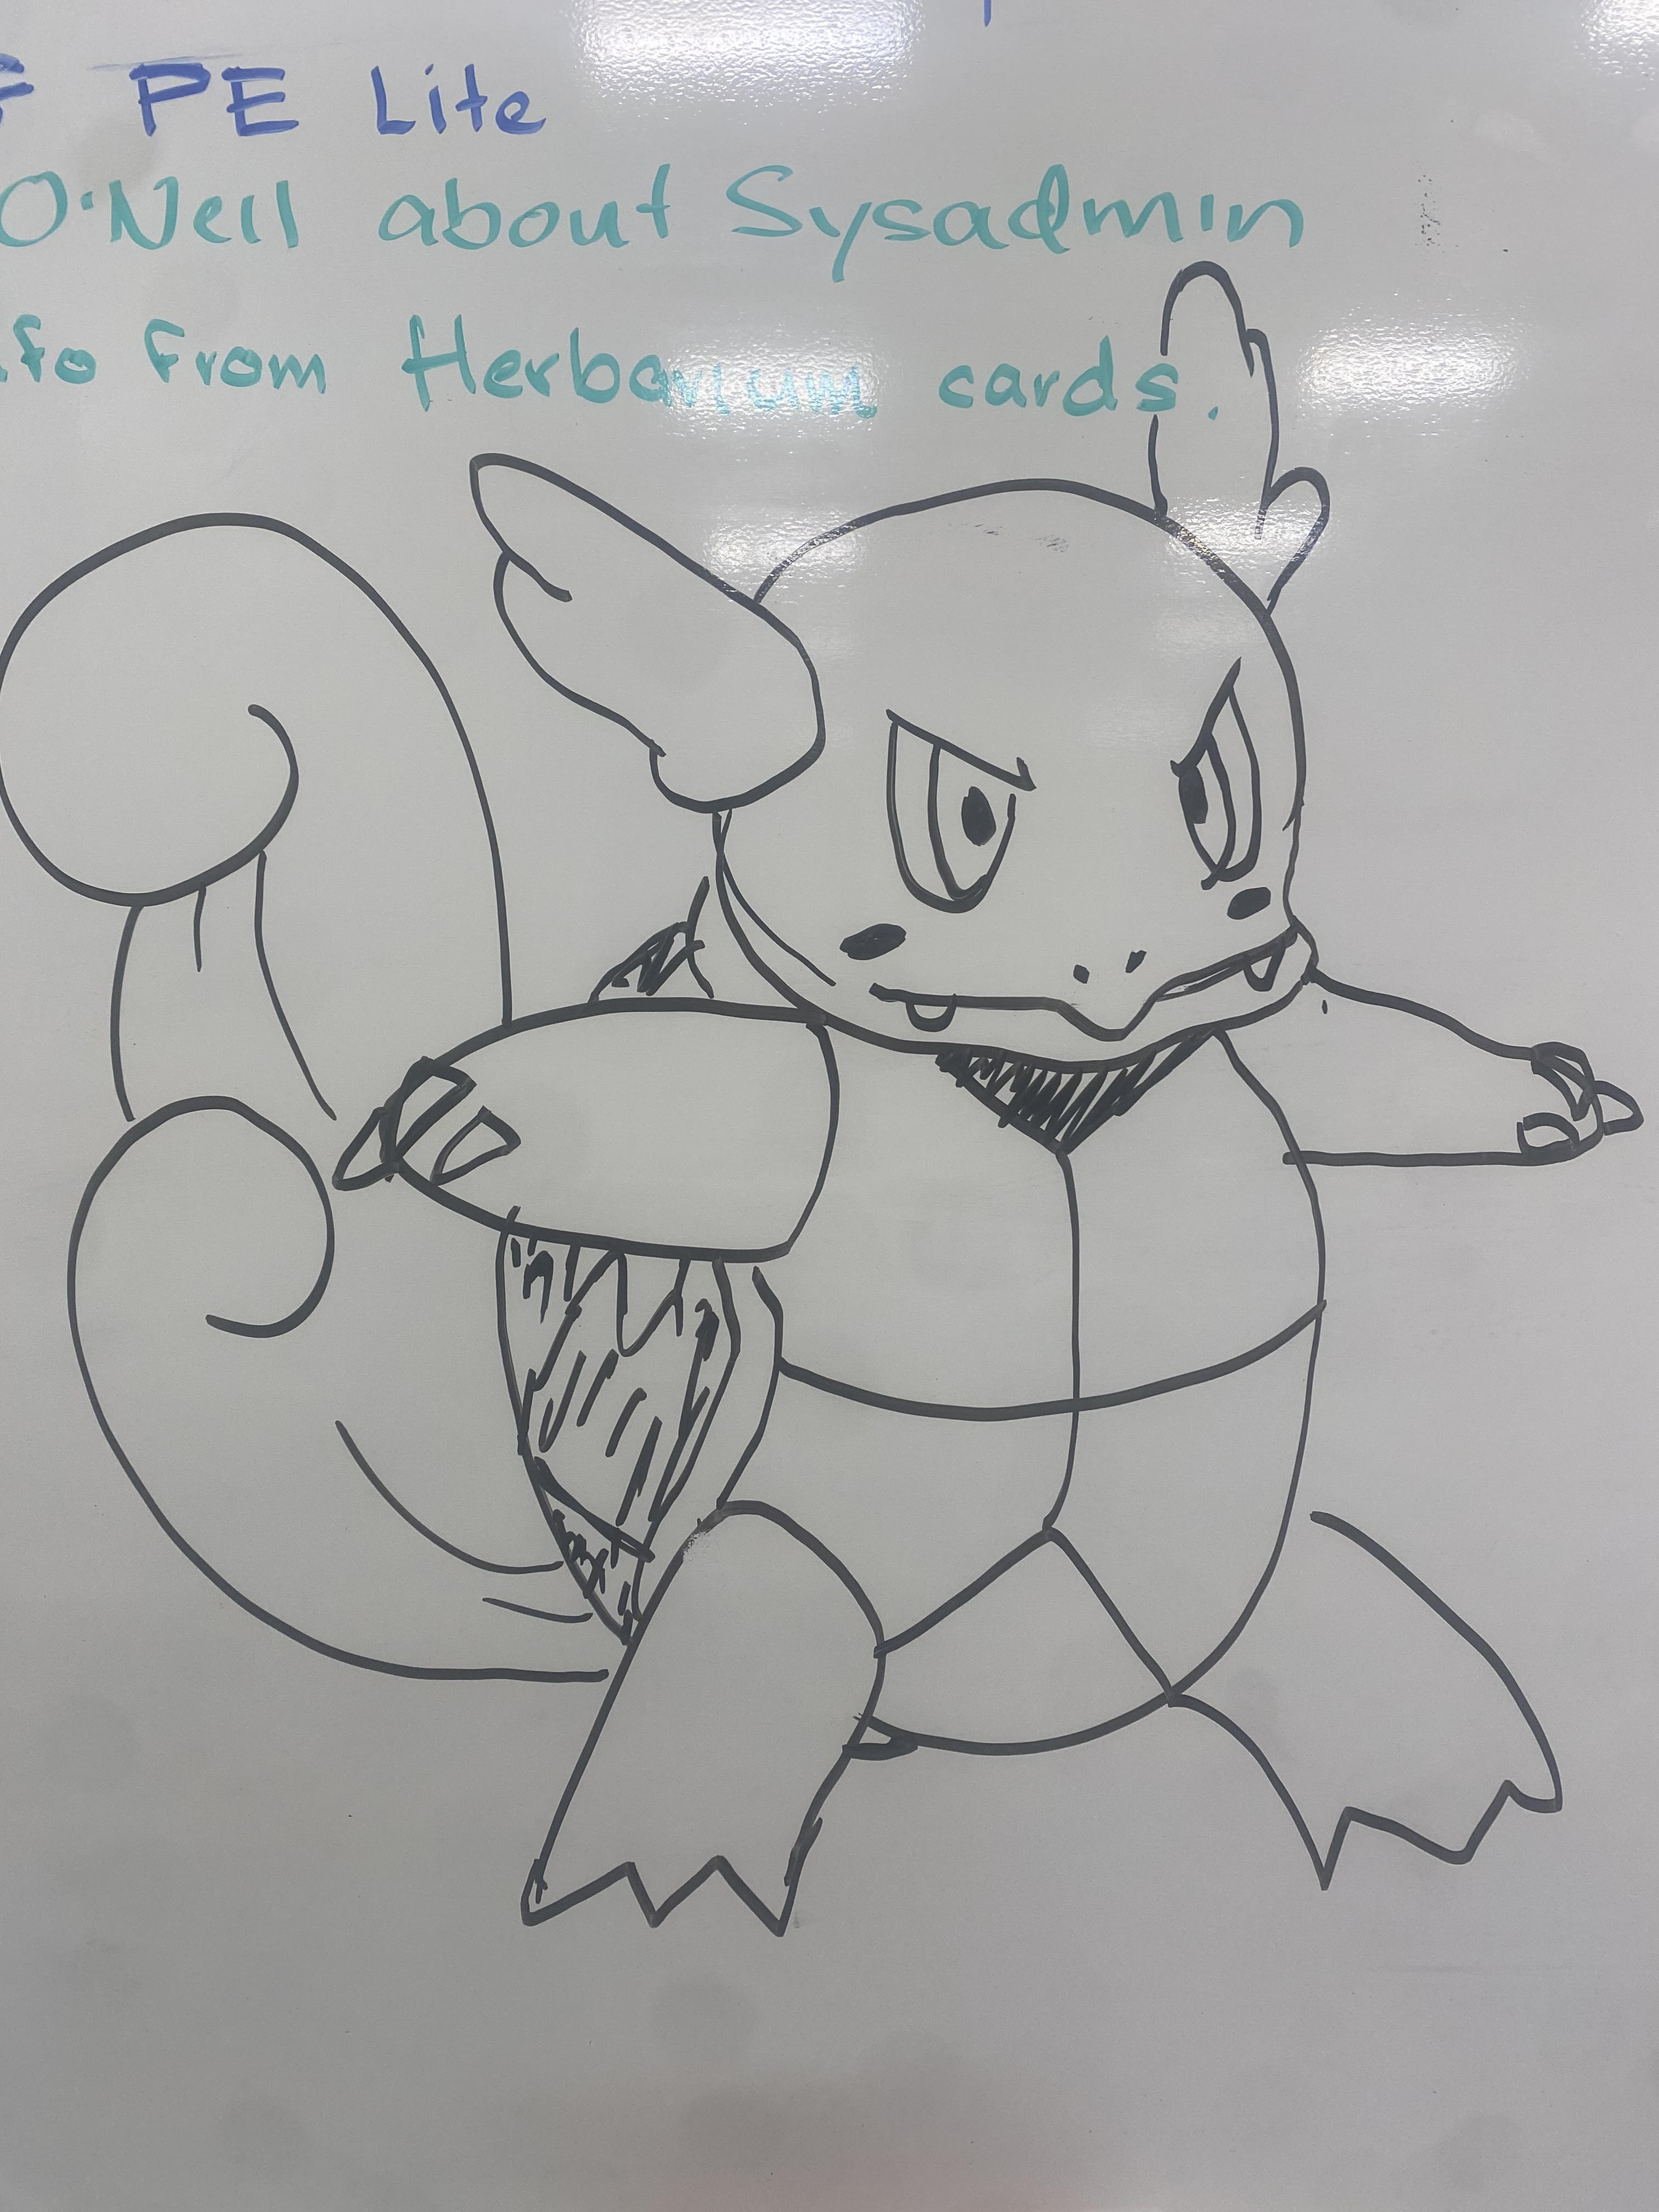 PE Lite
O'Neil about Sysadmin
from Herbarium cards.